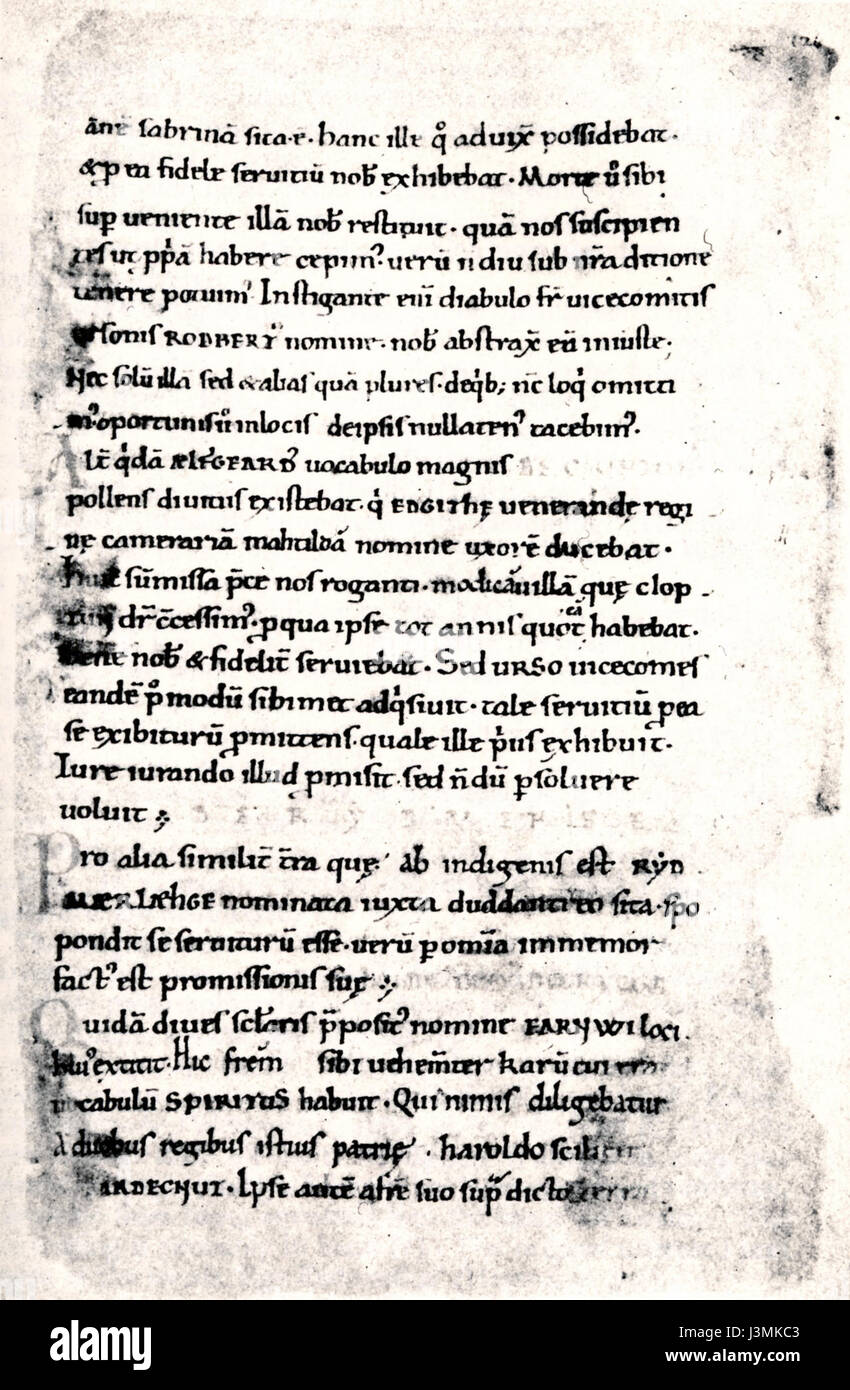 āne sabrinā sita·ē· hanc ille qͦ aduix̄ possidebat·
& ꝑ ea fidele seruitiū nob̄ exhibebat· Morte u̾o sibi
suꝑueniente illā nob̄ restituit· quā nos suscipien
tes ut ꝓp̄ā habere cepimꝰ· uerū n̄ diu sub nr̄a ditione
tenere potuimꝰ Instigante eni diabulo fr̄ uicecomitis
ursonis RODBERTꝰ nomine· nob̄ abstrax̄ eā iniuste·
Nec solū illa sed & alias quā plures· de qⁱb; nc̄ loqⁱ omitti
mꝰ oportunis u̾o in locis de ipsis nullatenꝰ tacebimꝰ·
Alt̄ qⁱdā ÆLFGEARDꝰ uocabulo magnis
pollens diuitiis existebat· qⁱ EDGITHĘ uenerandę regi
nę camerariā mahtildā nomine uxorē ducebat·
Huic sūmissa p̄ce nos roganti· modicā uillā quę clop
tun dr̄ c̄cessimꝰ· ꝑ qua ipse tot annis quot eā habebat·
bene nob̄ & fidelit̄ seruiebat· Sed URSO uicecomes
eandē pͦmodū sibimet adqⁱsiuit· tale seruitiū ꝑ ea
se exibiturū ꝓmittens· quale ille pⁱus exhibuit·
Iure iurando illud ꝓmisit· sed n̄dū ꝑsoluere
uoluit
Pro alia similit̄ t̄ra quę ab indigenis est RYD
MERLÆHGE nominata iuxta duddantreo sita· spo
pondit se seruiturū esse· uerū ꝑ omīa immemor
factꝰ est promissionis suę
Quidā diues scl̄aris p̄positꝰ nomine EARNWI loci
huiꝰ extitit· Hic frēm sibi uehem̄ter karū cui erat
uocabulū SPIRITUS habuit· Qui nimis diligebatur
A duobus regibus istius patrię· haroldo scilicet
HARDECNUT· Ipse autē a fr̄e suo sup̄dicto